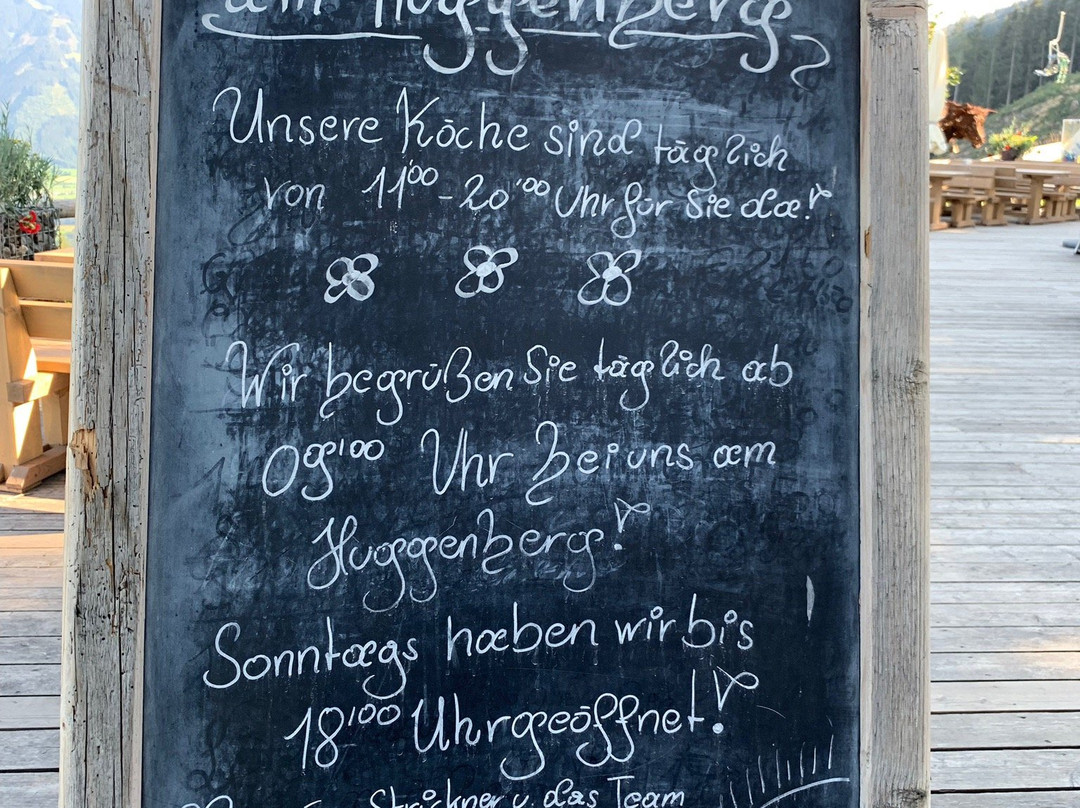 am Huggenberg
Unsere Köche sind täglich
von 11:00 - 20:00 Uhr für Sie da!
Wir begrüßen Sie täglich ab
09:00 Uhr bei uns am
Huggenberg!
Sonntags haben wir bis
18:00 Uhr geöffnet!
u. das Team